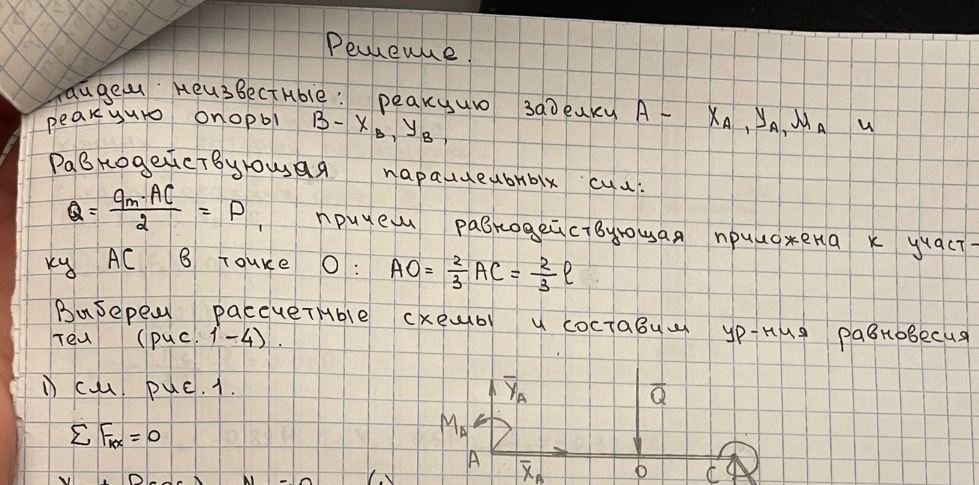 Решение.
Найдем неизвестные: реакцию заделки A – X_A, Y_A, M_A и
реакцию опоры B – X_B, Y_B,
Равнодействующая параллельных сил:
Q = \frac{q_m·AC}{2} = P, причем равнодействующая приложена к участ-
ку AC в точке O: AO = \frac{2}{3} AC = \frac{2}{3} l
Выберем рассчетные схемы и составим ур-ния равновесия
тел (рис. 1-4).
1) см. рис. 1.
Y̅_A
Q̅
M_A
Σ F_{kx} = 0
A
X̅_A
O
C